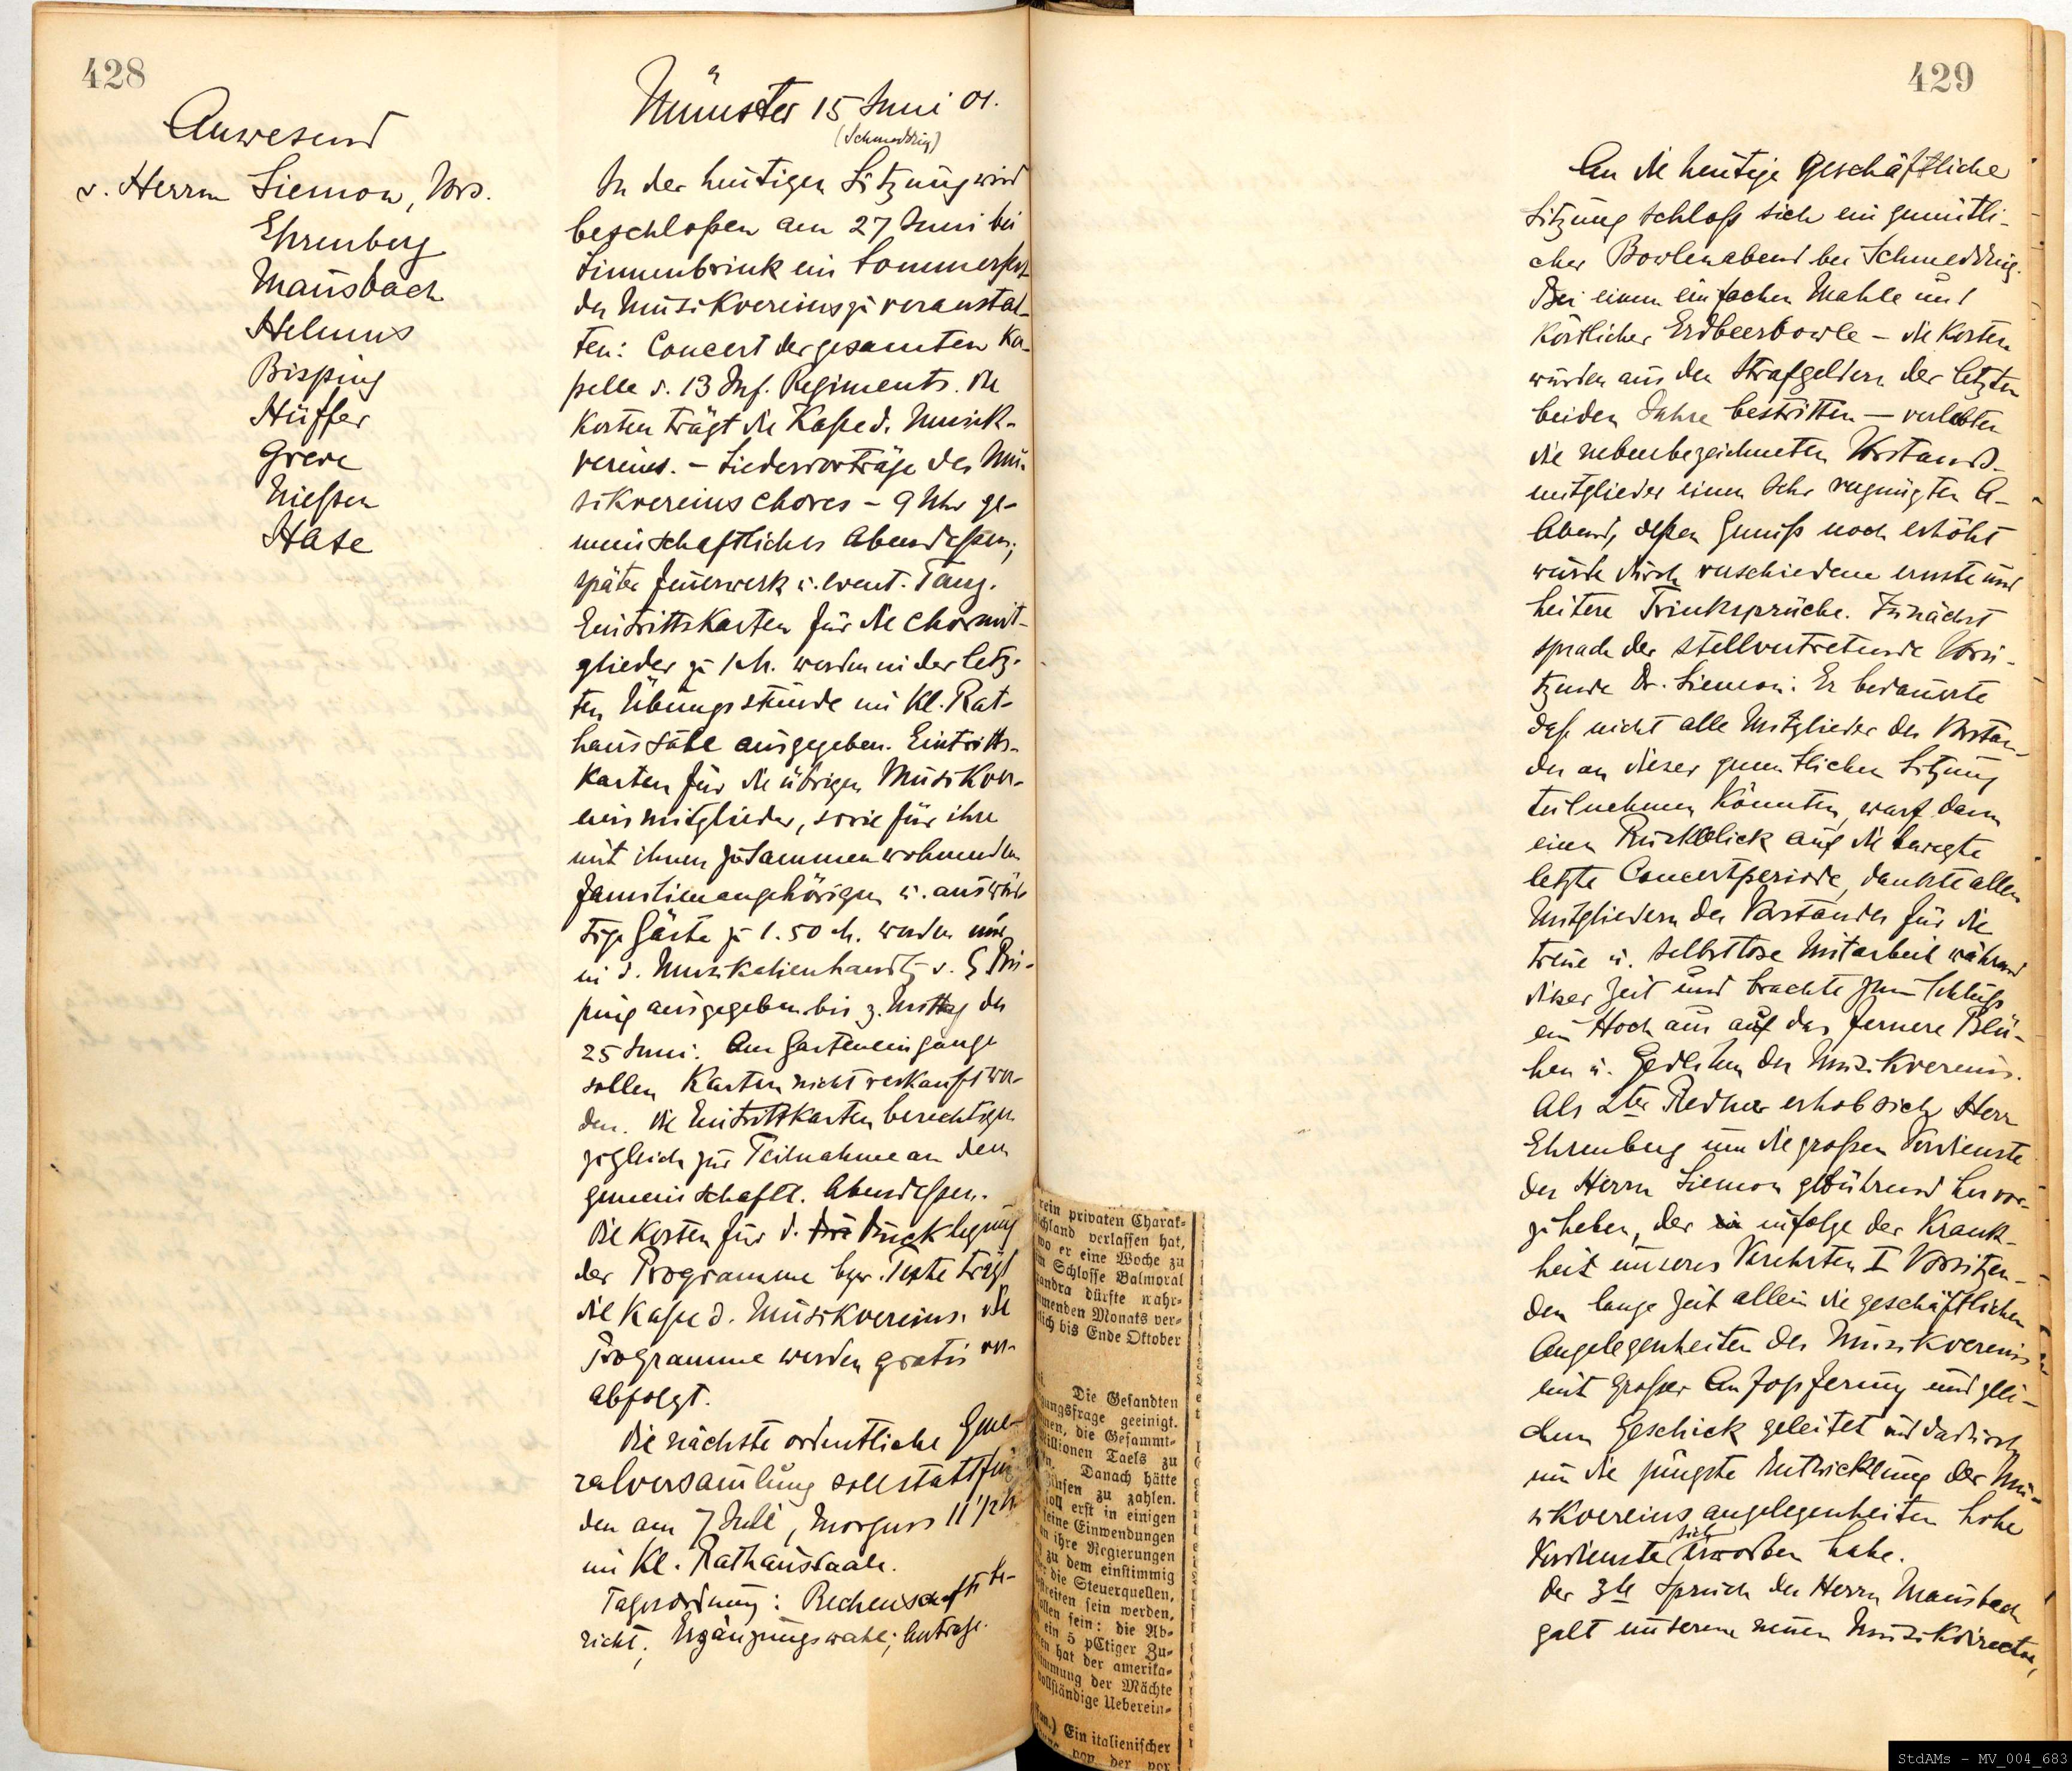 428
Anwesend
d. Herrn Siemon, Vors.
Ehrenberg
Mausbach
Helmus
Bisping
Hüffer
Greve
Nießen
Hase
Münster 15 Juni 01.
(Schmedding)
In der heutigen Sitzung wird
beschloßen am 27 Juni bei
Linnenbrink ein Sommerfest
des Musikvereins zu veranstal-
ten: Concert der gesamten Ka-
pelle d. 13 Inf. Regiments. Die
Kosten trägt die Kaße d. Musik-
vereins. – Liedervorträge des Mu-
sikvereinschores – 9 Uhr ge-
meinschaftliches Abendeßen;
später Feuerwerk u. event. Tanz.
Eintrittskarten für die Chormit-
glieder zu 1 M. werden in der letz-
ten Übungsstunde im Kl. Rat-
haussaale ausgegeben. Eintritts-
karten für die übrigen Musikver-
einsmitglieder, sowie für ihre
mit ihnen zusammenwohnenden
Familienangehörigen u. auswär-
tige Gäste zu 1.50 M. werden nur
in d. Musikalienhandlg v. Bis-
ping ausgegeben bis z. Mittag des
25 Juni. Am Garteneingange
sollen Karten nicht verkauft wer-
den. Die Eintrittkarten berechtigen
zugleich zur Teilnahme an dem
gemeinschaftl. Abendeßen.
Die Kosten für d. Drucklegung
der Programme bzw. Texte trägt
die Kaße d. Musikvereins. Die
Programme werden gratis ver-
abfolgt.
Die nächste ordentliche Gene-
ralversamlung soll stattfin-
den am 7 Juli, Morgens 11 1/2 h
im Kl. Rathaussaale.
Tagesordnung: Rechenschaftsbe-
richt; Ergänzungswahl; Anträge.
rein privaten Charak-
schland verlassen hat,
wo er eine Woche zu
m Schlosse Balmoral
andra dürfte wahr-
menden Monats ver-
lich bis Ende Oktober
Die Gesandten
gungsfrage geeinigt.
nen, die Gesammt-
Millionen Taels zu
Danach hätte
Zinsen zu zahlen.
soll erst in einigen
keine Einwendungen
n ihre Regierungen
zu dem einstimmig
die Steuerquellen,
streiten sein werden,
ollen sein: die Ab-
ein 5 pCtiger Zu-
en hat der amerika-
immung der Mächte
vollständige Ueberein-
Ein italienischer
von der vor
429
An die heutige geschäftliche
Sitzung schloß sich ein gemütli-
cher Bowlenabend bei Schmedding.
Bei einem einfachen Mahle und
köstlicher Erdbeerbowle – die Kosten
wurden aus den Strafgeldern der letzten
beiden Jahre bestritten – verlebten
die nebenbezeichneten Vorstands-
mitglieder einen sehr vergnügten A-
Abend, deßen Genuß noch erhöht
wurde durch verschiedene ernste und
heitere Trinksprüche. Zunächst
sprach der stellvertretende Vorsi-
tzende Dr. Siemon: Er bedauerte
daß nicht alle Mitglieder des Vorstan-
des an dieser gemütlichen Sitzung
teilnehmen könnten, warf dann
einen Rückblick auf die bewegte
letzte Concertperiode, dankte allen
Mitgliedern des Vorstandes für die
treue u. selbstlose Mitarbeit während
dieser Zeit und brachte zum Schluß
ein Hoch aus auf das fernere Blü-
hen u. Gedeihen des Musikvereins.
Als 2ter Redner erhob sich Herr
Ehrenberg um die großen Verdienste
des Herrn Siemon gebührend hervor-
zuheben, der infolge der Krank-
heit unseres verehrten I Vorsitzen-
den lange Zeit allein die geschäftlichen
Angelegenheiten des Musikvereins
mit großer Aufopferung und glei-
chem Geschick geleitet und dadurch
um die jüngste Entwicklung der Mu-
sikvereinsangelegenheiten hohe
Verdienste sich erworben habe.
Der 3te Spruch des Herrn Mausbach
galt unserem neuen Musikdirector,
StdAMs – MV_004_683